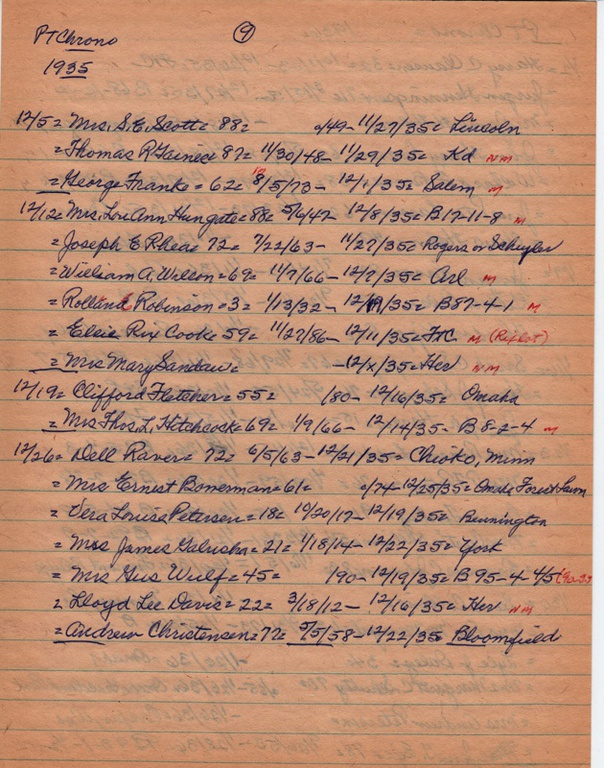 PT Chrono 9
1935
12/5= Mrs. S. E. Scott= 88= 0/49- 11/27/35= Lincoln
=Thomas R Gaines= 87= 11/30/48- 11/29/35= Kd NM
=George Franke= 62= 10/5/73- 12/1/35= Salem M
12/12= Mrs. Lou Ann Hungate= 88= 5/6/47- 12/8/35= B17-11-8 M
=Joseph E Rhea= 72= 7/22/63- 11/27/35= Rogers or Schuyler
=William A. Wilson=69= 11/7/66- 12/7/35= Arl M
= Rolland Robinson=3= 1/13/32- 12/ /35= B87-4-1 M
= Elsie Rix Cook= 59= 11/27/86- 12/11/35= M (Rixlot)
= Mrs Mary Sandau= -12/x/35= Her NM
12/19= Clifford Fletcher= 55= /80- 12/16/35= Omaha
=Mrs Thos. L. Hitchcock= 69= 1/9/66- 12/14/35- B8-2-4 M
12/26= Dell Raver= 72= 6/5/63- 12/21/35= Chioko, Minn
= Mrs Ernest Bowerman=61= 0/74-12/25/35= Omaha Forest Lawn
= Vera Louise Petersen=18= 10/20/17- 12/19/35= Bennington
= Mrs James Galusha= 21= 1/18/14- 12/22/35= York
= Mrs Gus Wulf= 45= 190- 12/19/35= B95-4-4/5
= Lloyd Lee Davis= 22= 3/18/12- 12/16/35= Her NM
= Andrew Christensen=77= 5/5/58-12/22/35 Bloomfield